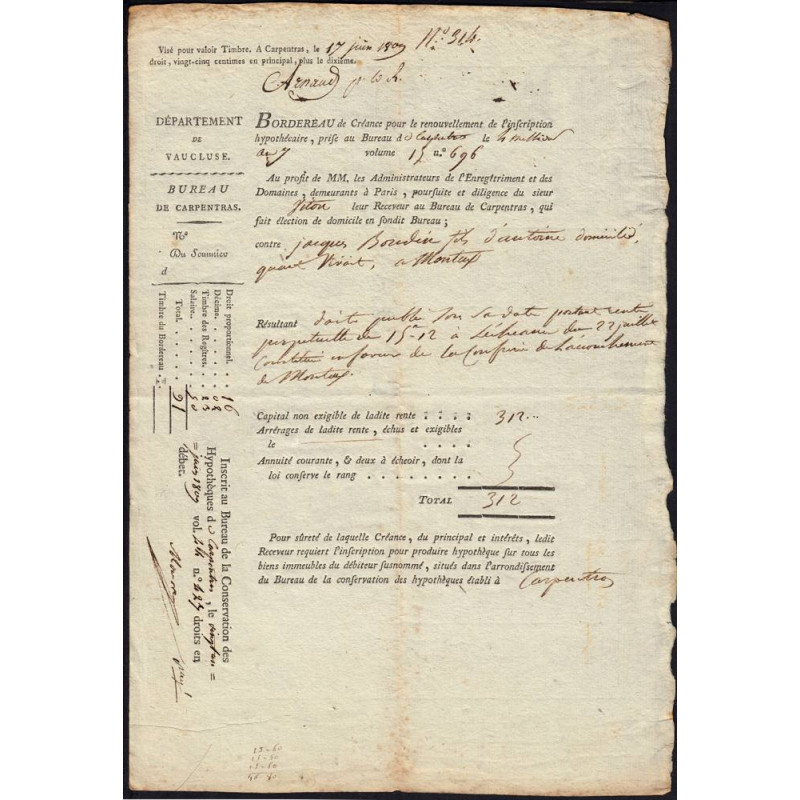 Visé pour valoir Timbre. A Carpentras, le 17 juin 1809 N.o 314.
droit, vingt-cinq centimes en principal, plus le dixième.
Arnaud
DÉPARTEMENT
DE
VAUCLUSE.
BUREAU
DE CARPENTRAS.
N.o
Du Sommier
d
BORDEREAU de Créance pour le renouvellement de l'inscription
hypothécaire, prise au Bureau d le
an 7 volume 15 n.o 696
Au profit de MM. les Administrateurs de l'Enregîtriment et des
Domaines, demeurants à Paris, poursuite et diligence du sieur
leur Receveur au Bureau de Carpentras, qui
fait élection de domicile en sondit Bureau;
contre jacques Boudin fils d'antoine domicilié,
quand vivoit, a Monteux
Résultant
perpetuelle de 15-12 à l'écheance du 22 juillet
en faveur de la Confrairie de
de Monteux.
Capital non exigible de ladite rente : : : : 312..
Arrérages de ladite rente, échus et exigibles
le . . . . . . . . . . . . . .
Annuité courante, & deux à échoir, dont la
loi conserve le rang . . . . . . . .
TOTAL 312
Pour sûreté de laquelle Créance, du principal et intérêts, ledit
Receveur requiert l'inscription pour produire hypothèque sur tous les
biens immeubles du débiteur susnommé, situés dans l'arrondissement
du Bureau de la conservation des hypothèques établi à Carpentras
Droit proportionnel. . . 16
Décime. . . . 02
Timbre des Regîtres. . . 23
Salaire. . . . . 50
Total. . . . 91
Timbre du Bordereau.
Inscrit au Bureau de la Conservation des
Hypothèques d Carpentras, le vingt un
juin 1809 vol. n.o droits en
débet.